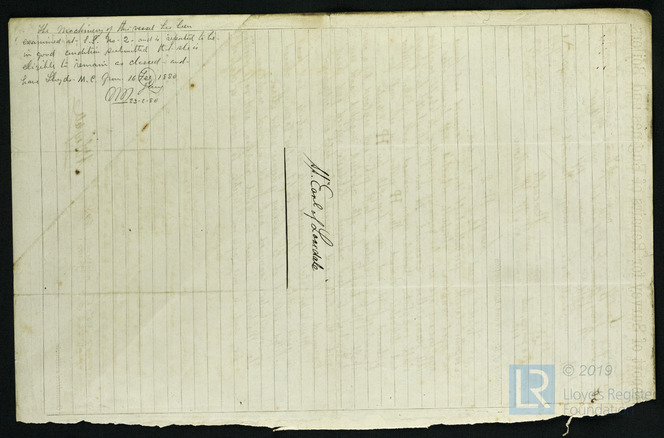 The Machinery of this vessel has been
examined at S.S. No 2 and is reported to be
in good condition submitted that she is
eligible to remain as classed and
have Lloyds M.C. 10 1880
23-2-80
Str. Earl of Lonsdale
LR
© 2019
Lloyd's Registe
Foundation